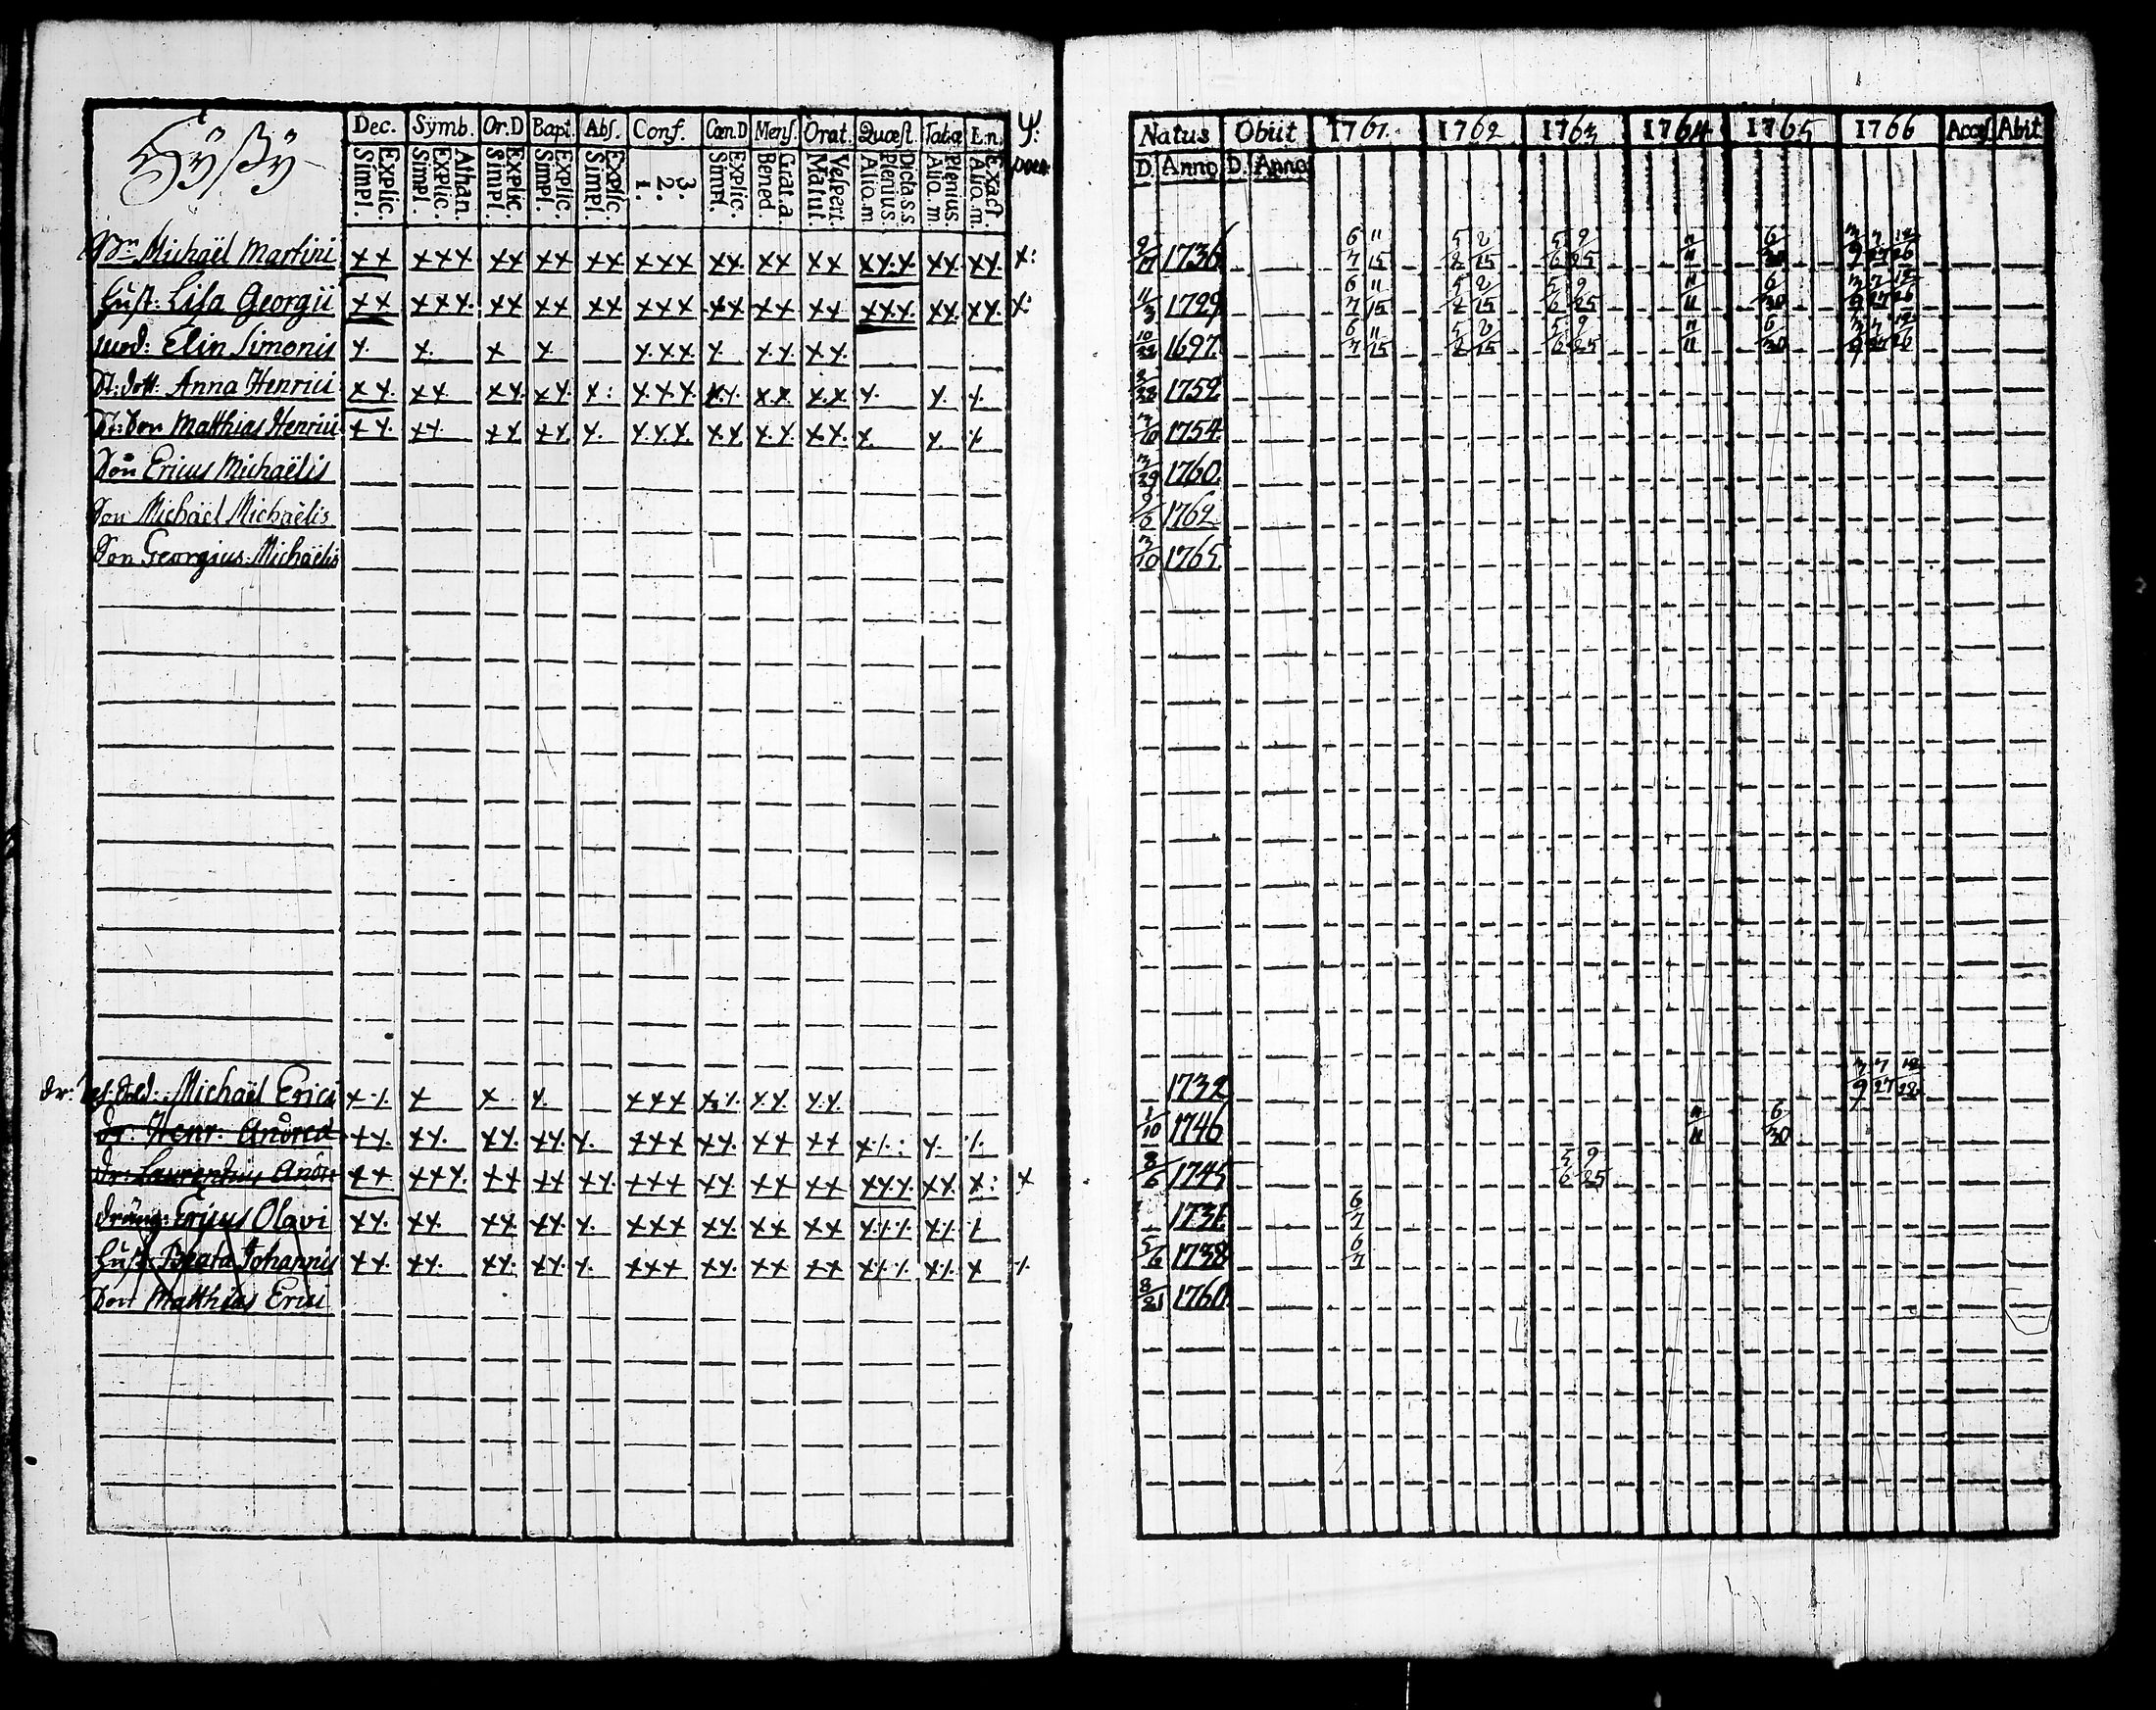 Hÿßÿ
Dec. Sÿmb. Or.D Bapt. Abs. Conf. Cœn.D Mens. Orat. Quæst. Tab.æ E.n. Ψ:
Explic. Simpl. Athan. Explic. Simpl. Explic. Simpl. Explic. Simpl. Explic. Simpl. 3. 2. 1. Explic. Simpl. Grat.a. Bened. Vespert. Matut. Dicta.s.s. Plenius. Alio.m. Plenius. Alio.m. Exact. Alio.m.
Natus Obiit 1761. 1762 1763 1764 1765 1766 Access Abit
D. Anno D. Anno
Michaël Martini x x x x x x x x x x x x x x x x x x x x x x x x x x x: 1736 6/7 11/15 5/2 2/15 5/6 9/25 11/11 6/30 3/9 7/27 12/26
Hust: Lisa Georgii x x x x x x x x x x x x x x x x x x x x x x x x x x x: 11/3 1729 6/7 11/15 5/2 2/15 5/6 9/25 11/11 6/30 3/9 7/27 12/26
mod: Elin Simonis x x x x x x x x x x x x 1697 6/7 11/15 5/2 2/15 5/6 9/25 11/11 6/30 3/9 7/27 12/26
St: dott: Anna Henrici x x x x x x x x x: x x x x x x x x x x x x 1759
St: Son Matthias Henrici x x x x x x x x x x x x x x x x x x x x x 3/10 1754
Son Ericus Michaëlis 3/29 1760
Son Michaël Michaëlis 9/6 1762
Son Georgius Michaëlis 3/10 1765
dr. Sold: Michaël Erici x x x x x x x x x x x x x x 1732 3/9 7/27 12/28
dr. Henr. Andreæ x x x x x x x x x x x x x x x x x x x x: x x 1/10 1746 11/11 6/30
dr: Laurentius Andr: x x x x x x x x x x x x x x x x x x x x x x x x x x: x 8/6 1745 5/6 9/25
dräng: Ericus Olavi x x x x x x x x x x x x x x x x x x x x x x x x 1731 6/7
Hust: Beata Johannis x x x x x x x x x x x x x x x x x x x x x x x x x 5/6 1738 6/7
Son Matthias Erici 8/21 1760